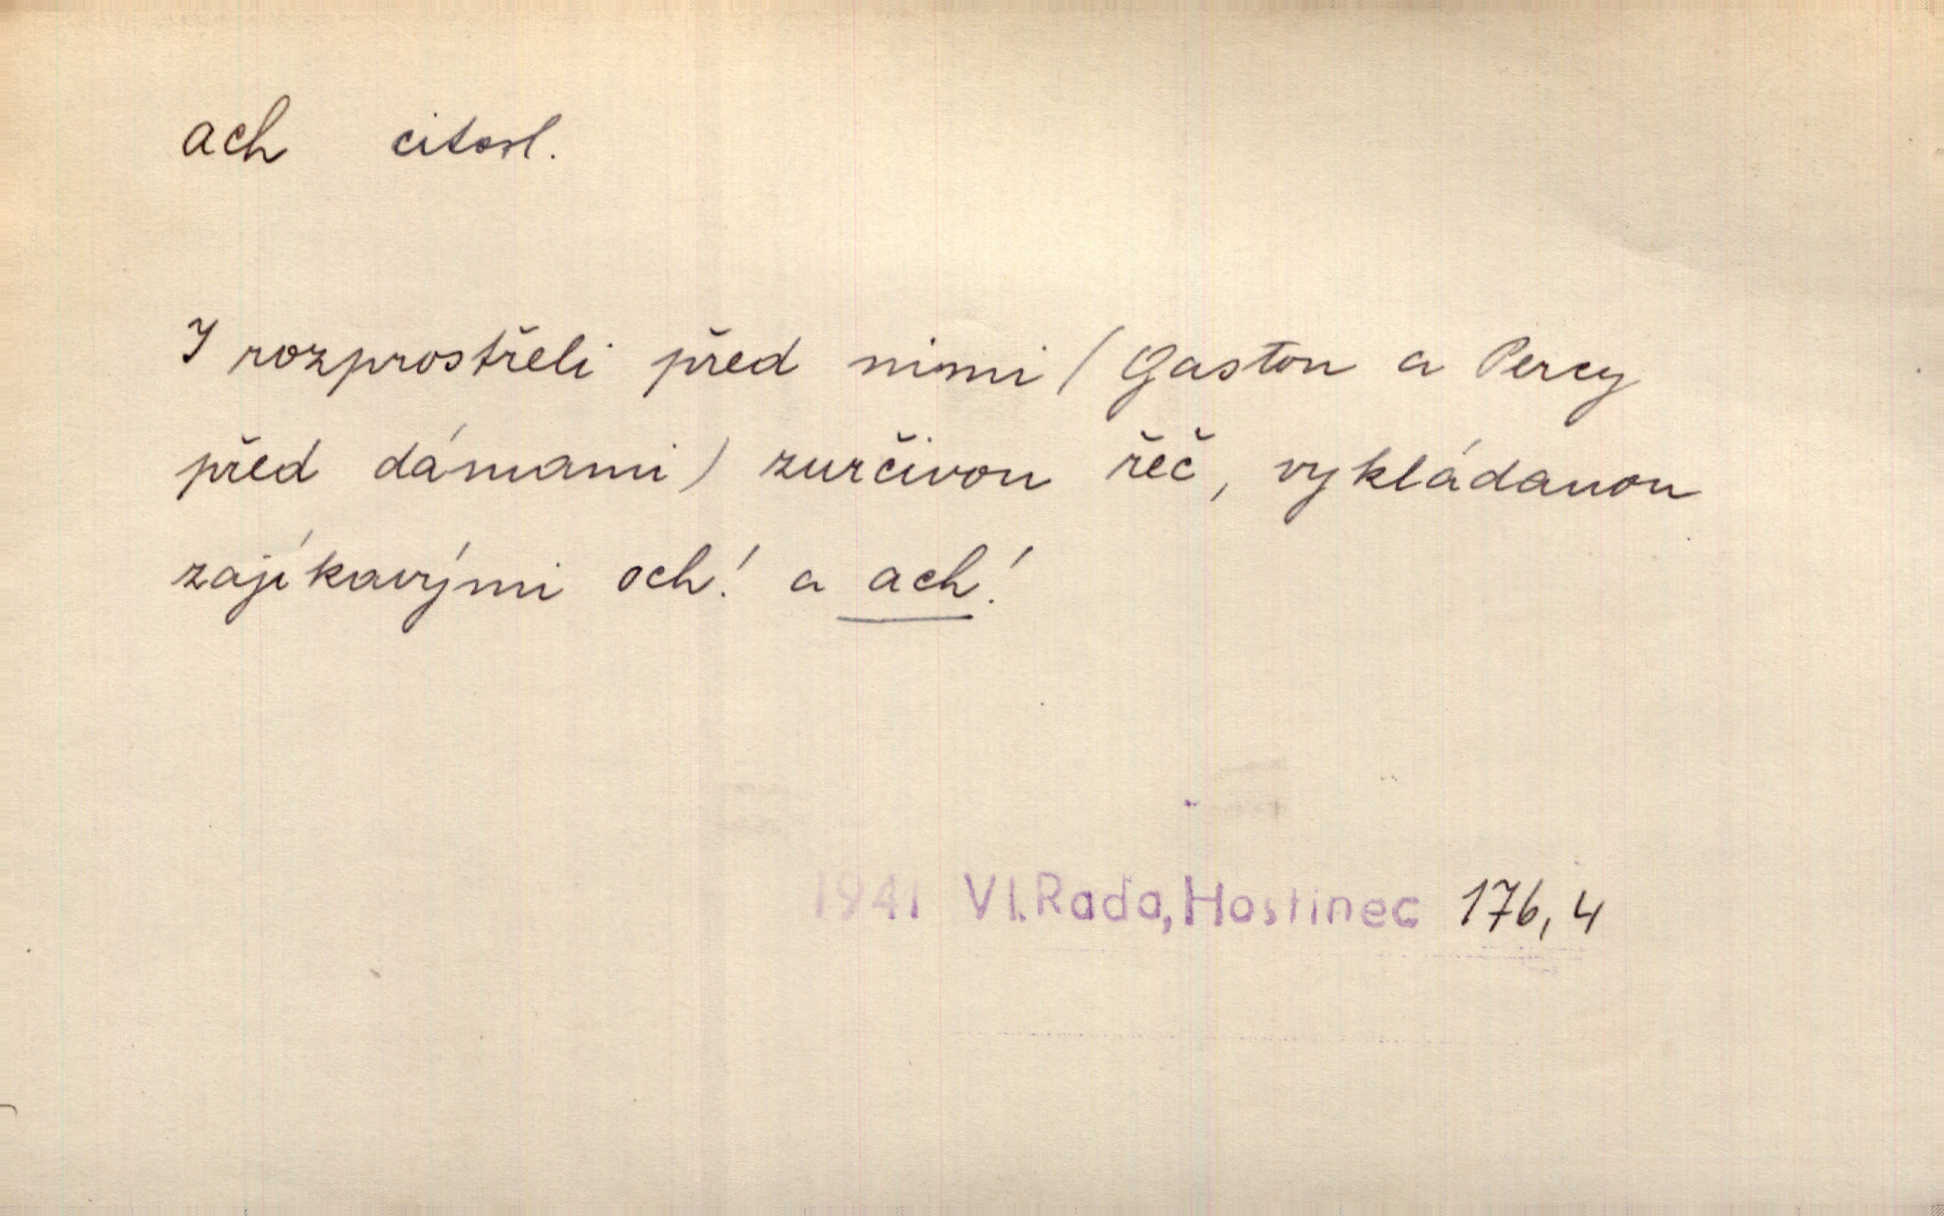 ach citosl.
I rozprostřeli před nimi (Gaston a Percy
před dámami) zurčivou řeč, vykládanou
zajíkavými och! a ach!
1941 Vl. Rada, Hostinec 176, 4